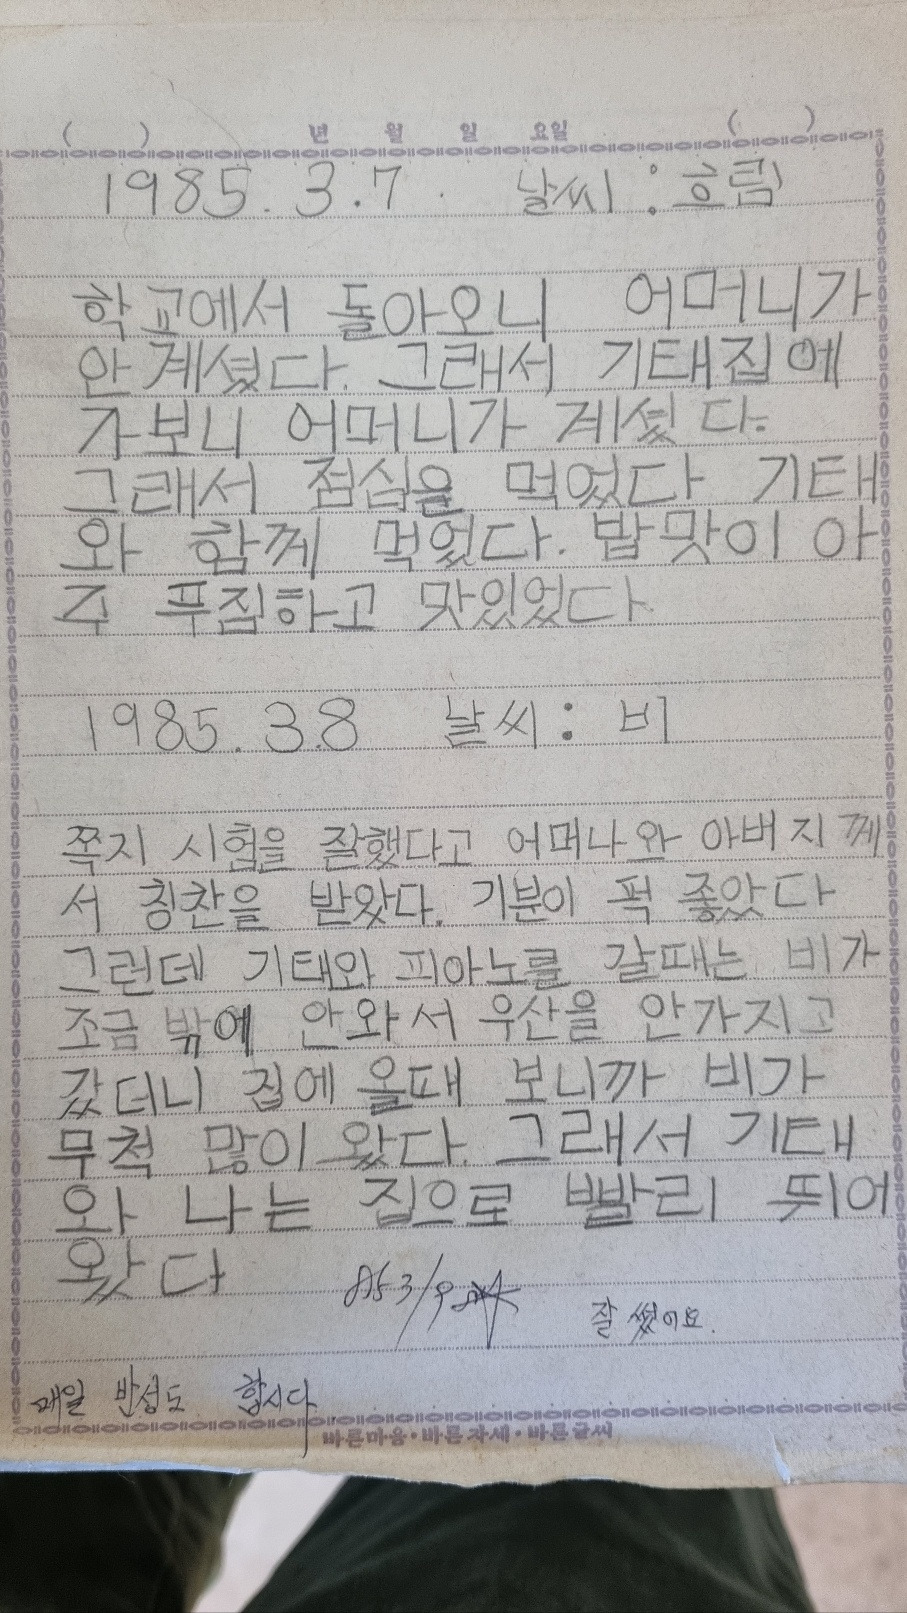 ( ) 년 월 일 요일 ( )
1985. 3. 7. 날씨 : 흐림
학교에서 돌아오니 어머니가
안 계셨다. 그래서 기태집에
가보니 어머니가 계셨다.
그래서 점심을 먹었다 기태
와 함께 먹었다. 밥맛이 아
주 푸짐하고 맛있었다.
1985. 3.8 날씨 : 비
쪽지 시험을 잘했다고 어머나와 아버지께
서 칭찬을 받았다. 기분이 퍽 좋았다
그런데 기태와 피아노를 갈때는 비가
조금 밖에 안와서 우산을 안가지고
갔더니 집에 올때 보니까 비가
무척 많이 왔다. 그래서 기태
와 나는 집으로 빨리 뛰어
왔다
85 3/9
잘 썼어요.
매일 반성도 합시다
바른마음·바른자세·바른글씨